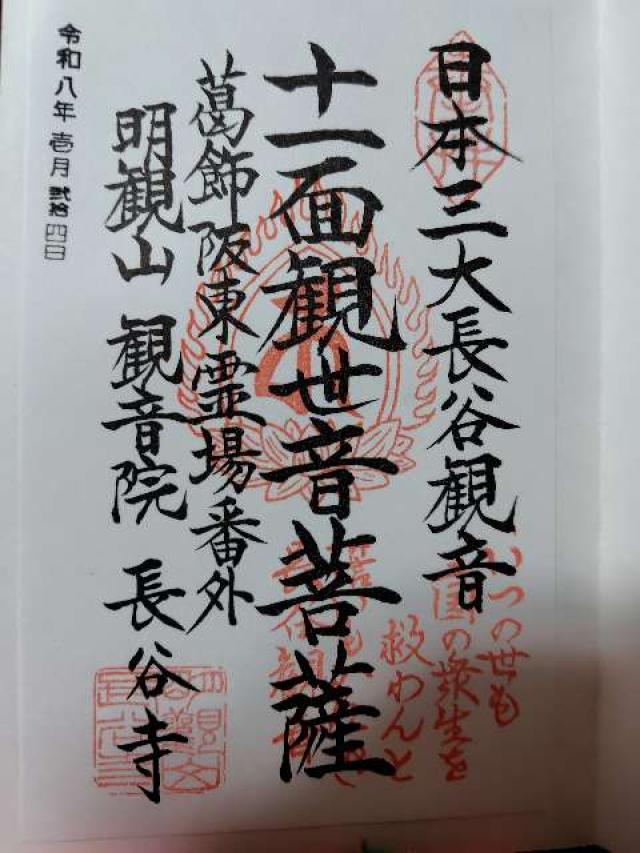 日本三大長谷観音
十一面観世音菩薩
葛飾阪東霊場番外
明観山 観音院 長谷寺
令和八年 壱月 弐拾四日
いつの世も
国の衆生を
救わんと